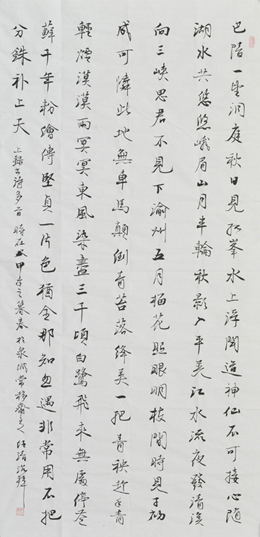 巴陵一望洞庭秋日見孤峯水上浮聞道神仙不可接心随
湖水共悠悠峨眉山月半輪秋影入平羌江水流夜發清溪
向三峡思君不見下渝州五月榴花照眼明枝間時見子初
成可憐此地無車馬顛倒青苔落絳英一把青秧趁手青
輕煙漠漠雨冥冥東風染盡三千頃白鷺飛來無處停蒼
蘚千年粉繪傳堅貞一片色猶全那知忽遇非常用不把
分銖補上天 上錄古詩多首 時在甲午之暮春於泉洲